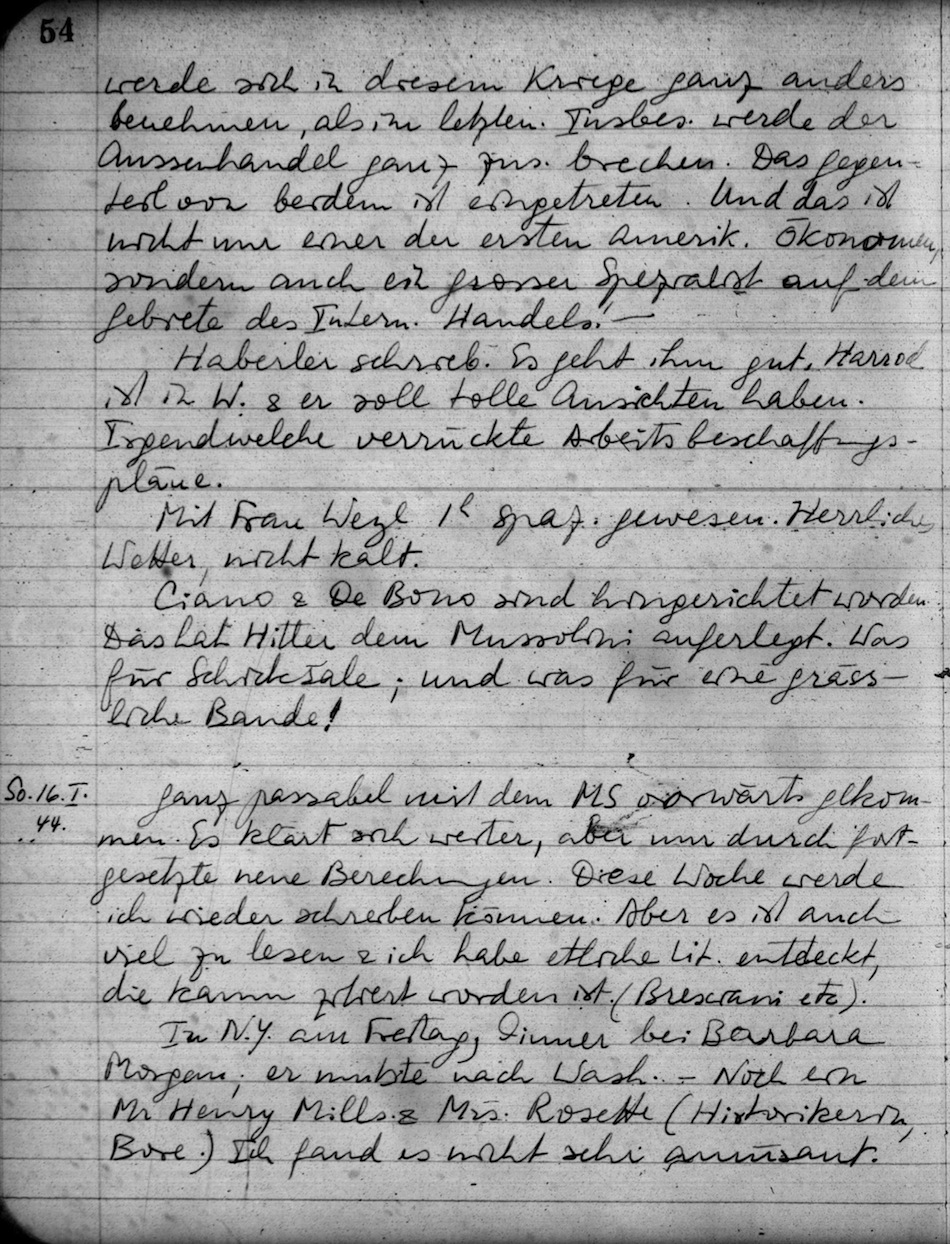 54
werde sich in diesem Kriege ganz anders
benehmen, als im letzten. Insbes. werde der
Aussenhandel ganz zus. brechen. Das gegen-
teil von beidem ist eingetreten. Und das ist
nicht nur einer der ersten Amerik. Ökonomen,
sondern auch ein grosser Spezialist auf dem
Gebiete des Intern. Handels! —
Haberler schrieb. Es geht ihm gut. Harrod
ist in W. & er soll tolle Ansichten haben.
Irgendwelche verrückte Arbeitsbeschaffungs-
pläne.
Mit Frau Weyl 1h spaz. gewesen. Herrliches
Wetter, nicht kalt.
Ciano & De Bono sind hingerichtet worden.
Das hat Hitler dem Mussolini auferlegt. Was
für Schicksale; und was für eine gräss-
liche Bande!
So. 16. I.
44.
Ganz passabel mit dem MS vorwärts gekom-
men. Es klärt sich weiter, aber nur durch fort-
gesetzte neue Berechnungen. Diese Woche werde
ich wieder schreiben können. Aber es ist auch
viel zu lesen & ich habe etliche Lit. entdeckt,
die kaum zitiert worden ist. (Bresciani etc).
In N.Y. am Freitag, Dinner bei Barbara
Morgan; er musste nach Wash. – Noch ein
Mr Henry Mills & Mrs. Rosette (Historikerin,
Bore.) Ich fand es nicht sehr amüsant.